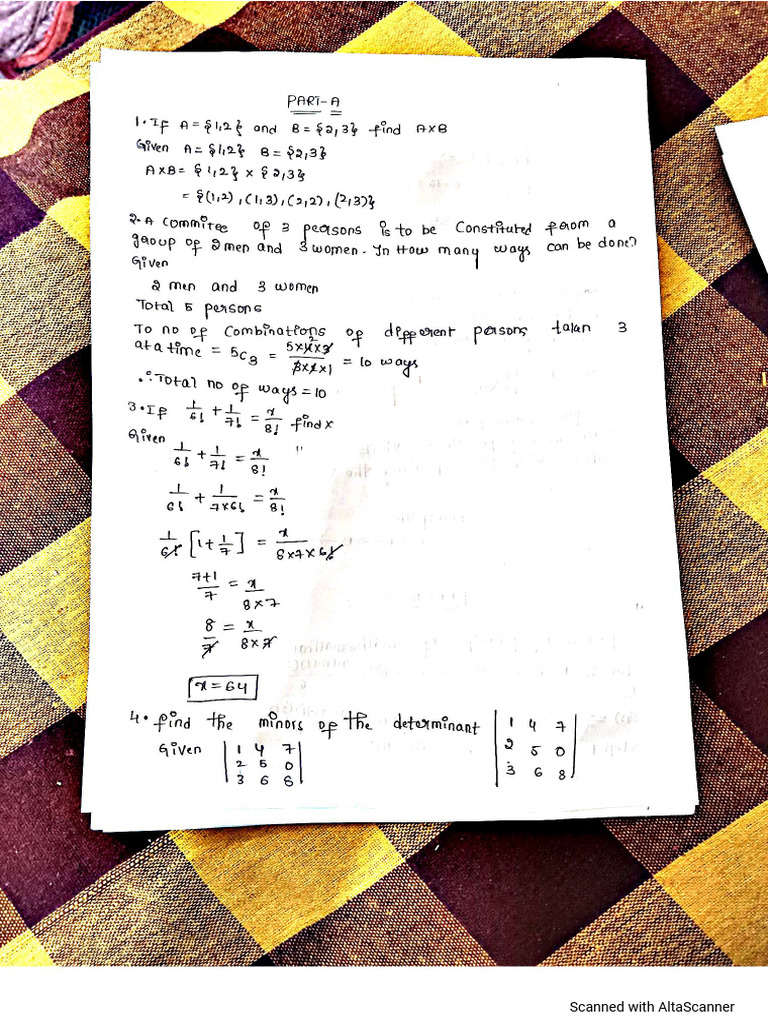 PART-A
1. If A = {1,2} and B = {2,3} find A×B
Given A = {1,2} B = {2,3}
A×B = {1,2} × {2,3}
= {(1,2), (1,3), (2,2), (2,3)}
2. A Commitee of 3 persons is to be Constituted from a
group of 2 men and 3 women. In How many ways can be done?
Given
2 men and 3 women
Total 5 persons
To no of Combinations of different persons taken 3
at a time = 5C3 = 5×4×3/3×2×1 = 10 ways
∴ Total no of ways = 10
3. If 1/6! + 1/7! = x/8! find x
Given
1/6! + 1/7! = x/8!
1/6! + 1/7×6! = x/8!
1/6! [1 + 1/7] = x/8×7×6!
7+1/7 = x/8×7
8/7 = x/8×7
x = 64
4. find the minors of the determinant |1 4 7
2 5 0
3 6 8|
Given |1 4 7
2 5 0
3 6 8|
Scanned with AltaScanner